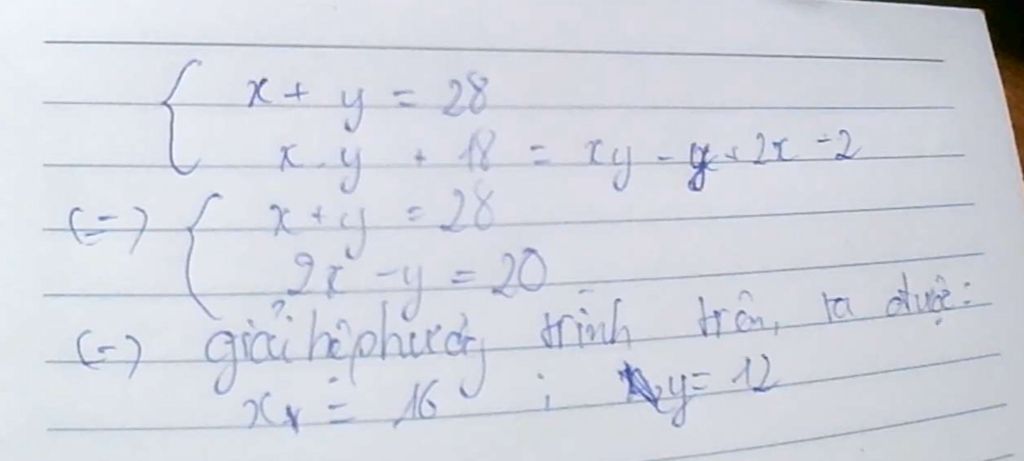 x + y = 28
x.y + 18 = xy - y + 2x - 2
(=) x + y = 28
2x - y = 20
(=) giải hệ phương trình trên, ta được:
x = 16 ; y = 12